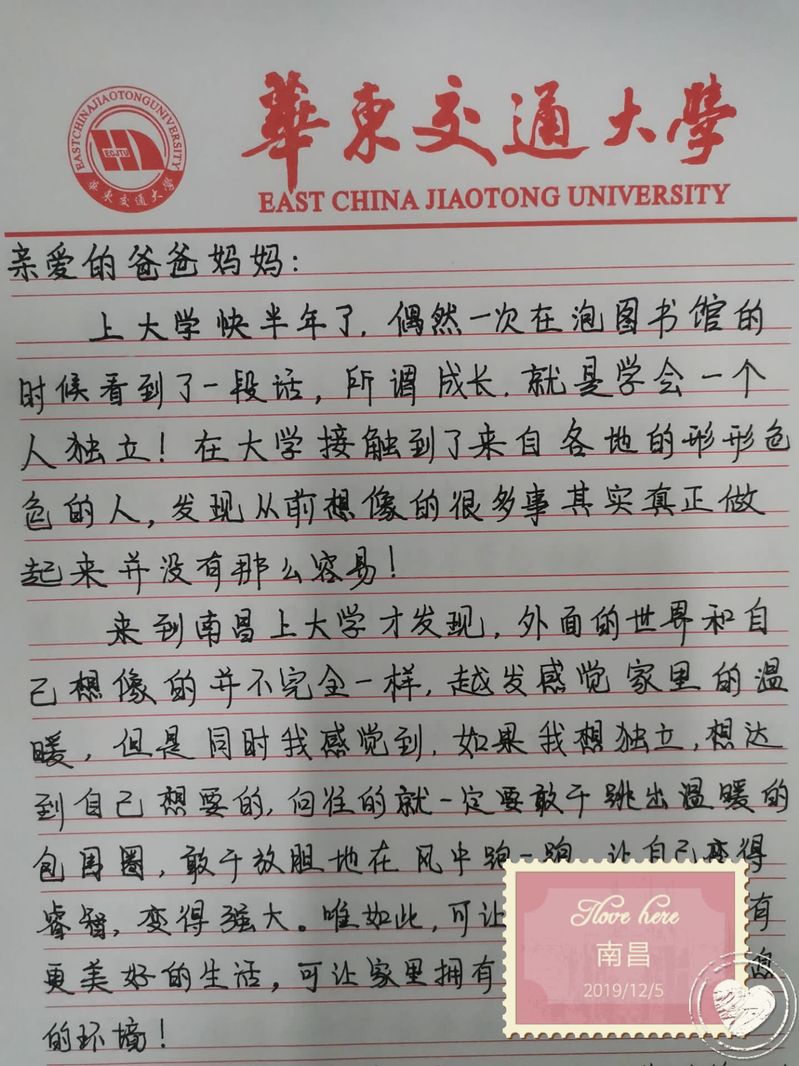 EASTCHINAJIAOTONGUNIVERSITY
ECJTU
华东交通大学
華東交通大學
EAST CHINA JIAOTONG UNIVERSITY
亲爱的爸爸妈妈：
上大学快半年了，偶然一次在泡图书馆的
时候看到了一段话，所谓成长，就是学会一个
人独立！在大学接触到了来自各地的形形色
色的人，发现从前想像的很多事其实真正做
起来并没有那么容易！
来到南昌上大学才发现，外面的世界和自
己想像的并不完全一样，越发感觉家里的温
暖，但是同时我感觉到，如果我想独立，想达
到自己想要的，向往的就一定要敢于跳出温暖的
包围圈，敢于放胆地在风中跑一跑，让自己变得
睿智，变得强大。唯如此，可让 有
更美好的生活，可让家里拥有
的环境！
I love here
南昌
2019/12/5